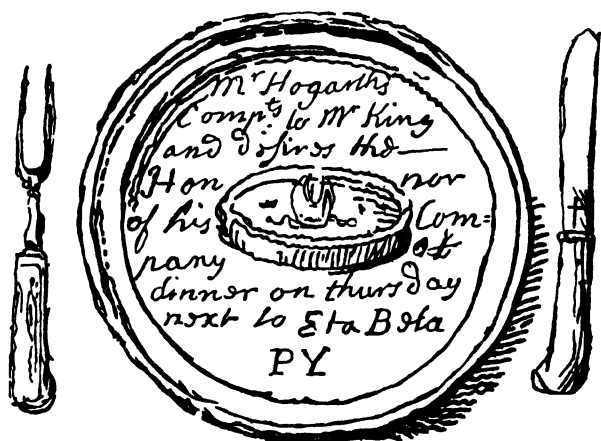 Mr Hogarths
Compts to Mr King
and desires the
Hon nor
of his Com=
pany at
dinner on thursday
next to Eta Beta
PY